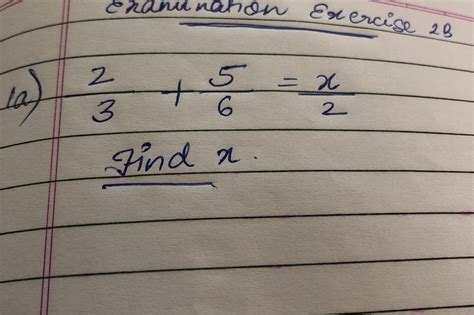 Examination Exercise 2B
1a) 2/3 + 5/6 = x/2
Find x.